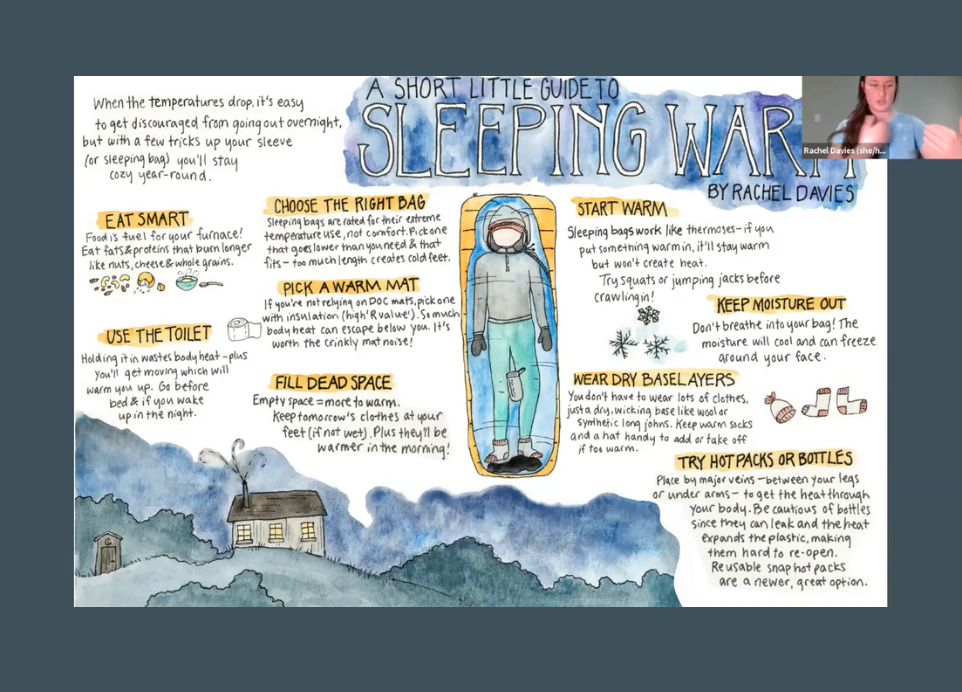 A SHORT LITTLE GUIDE TO
SLEEPING WARM
BY RACHEL DAVIES
Rachel Davies (she/h...
When the temperatures drop, it's easy
to get discouraged from going out overnight,
but with a few tricks up your sleeve
(or sleeping bag) you'll stay
cozy year-round.
EAT SMART
Food is fuel for your furnace!
Eat fats & proteins that burn longer
like nuts, cheese & whole grains.
USE THE TOILET
Holding it in wastes body heat - plus
you'll get moving which will
warm you up. Go before
bed & if you wake
up in the night.
CHOOSE THE RIGHT BAG
Sleeping bags are rated for their extreme
temperature use, not comfort. Pick one
that goes lower than you need & that
fits - too much length creates cold feet.
PICK A WARM MAT
If you're not relying on DOC mats, pick one
with insulation (high 'R value'). So much
body heat can escape below you. It's
worth the crinkly mat noise!
FILL DEAD SPACE
Empty space = more to warm.
Keep tomorrow's clothes at your
feet (if not wet). Plus they'll be
warmer in the morning!
START WARM
Sleeping bags work like thermoses - if you
put something warm in, it'll stay warm
but won't create heat.
Try squats or jumping jacks before
crawling in!
KEEP MOISTURE OUT
Don't breathe into your bag! The
moisture will cool and can freeze
around your face.
WEAR DRY BASELAYERS
You don't have to wear lots of clothes,
just a dry, wicking base like wool or
synthetic long johns. Keep warm socks
and a hat handy to add or take off
if too warm.
TRY HOT PACKS OR BOTTLES
Place by major veins - between your legs
or under arms - to get the heat through
your body. Be cautious of bottles
since they can leak and the heat
expands the plastic, making
them hard to re-open.
Reusable snap hot packs
are a newer, great option.